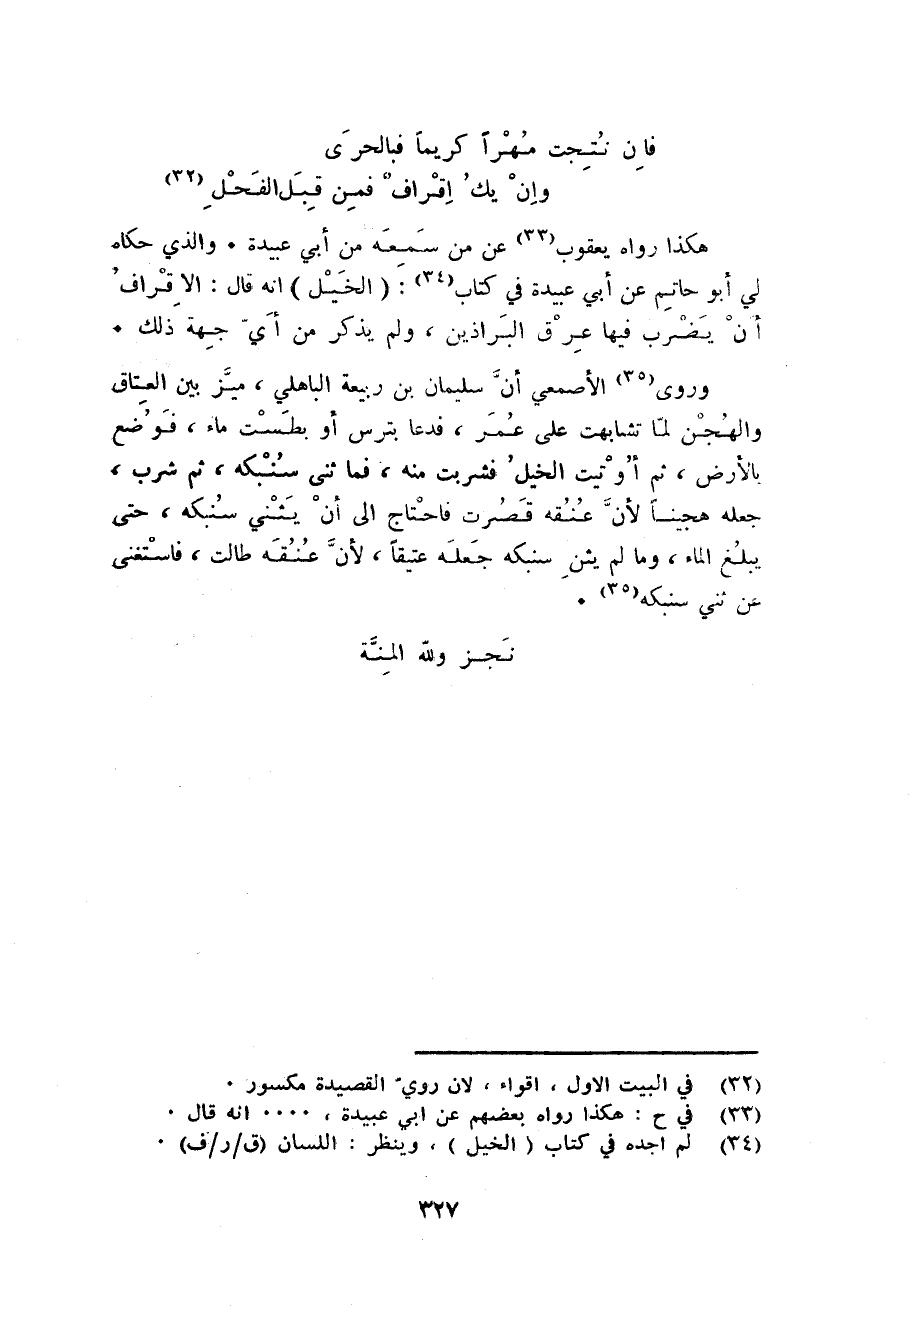 فإن نُتِجت مُهْراً كريماً فبالحرَى
وإنْ يكُ إقْرافٌ فمِن قِبَلِ الفَحْلِ (٣٢)
هكذا رواه يعقوب(٣٣) عن من سَمِعَه من أبي عبيدة . والذي حكاه
لي أبو حاتِم عن أبي عبيدة في كتاب(٣٤) : ( الخَيْل ) انه قال : الاِقْرافُ
أنْ يَضْرِب فيها عِرْق البَراذين ، ولم يذكر من أيّ جِهة ذلك .
وروى(٣٥) الأصمعي أنَّ سليمان بن ربيعة الباهلي ، ميَّز بين العِتاق
والهُجْن لمّا تشابهت على عُمَر ، فدعا بترس أو بطَسْت ماء ، فوُضع
بالأرض ، ثم أُوْتيت الخيلُ فشربت منه ، فما ثنى سُنْبُكه ، ثم شرب ،
جعله هجيناً لأنَّ عُنُقه قَصُرت فاحْتاج الى أنْ يَثْني سُنبكه ، حتى
يبلُغ الماء ، وما لم يثنِ سنبكه جَعلَه عتيقاً ، لأنَّ عُنُقَه طالت ، فاسْتغنى
عَن ثني سنبكه(٣٥) .
نَجز ولله المِنَّة
(٣٢) في البيت الاول ، اقواء ، لان رويّ القصيدة مكسور .
(٣٣) في ح : هكذا رواه بعضهم عن ابي عبيدة ، .... انه قال .
(٣٤) لم اجده في كتاب ( الخيل ) ، وينظر : اللسان (ق/ر/ف) .
٣٢٧